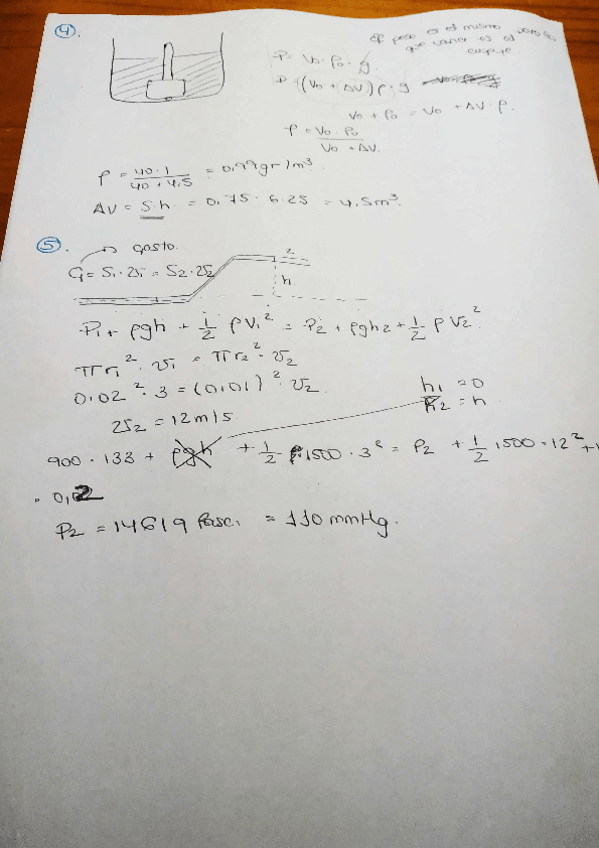 4.
El peso es el mismo pero lo
que varía es el
empuje.
P = V₀ · ρ₀ · g.
P = (V₀ + ΔV) ρ · g
V₀ + ρ₀ = V₀ + ΔV · ρ.
ρ = V₀ · ρ₀ / V₀ + ΔV.
ρ = 40 · 1 / 40 + 4.5 = 0,99 gr/m³
ΔV = S·h = 0.75 · 6.25 = 4,5 m³.
5. → Gasto.
G = S₁ · v₁ = S₂ · v₂
2
h
P₁ + ρgh + 1/2 ρV₁² = P₂ + ρgh₂ + 1/2 ρV₂²
πr₁² · v₁ = πr₂² · v₂
0.02² · 3 = (0.01)² · v₂
h₁ = 0
h₂ = h
v₂ = 12 m/s
900 · 133 + ρgh + 1/2 1500 · 3² = P₂ + 1/2 1500 · 12² +
· 0,02
P₂ = 14619 Pasc. = 110 mmHg.